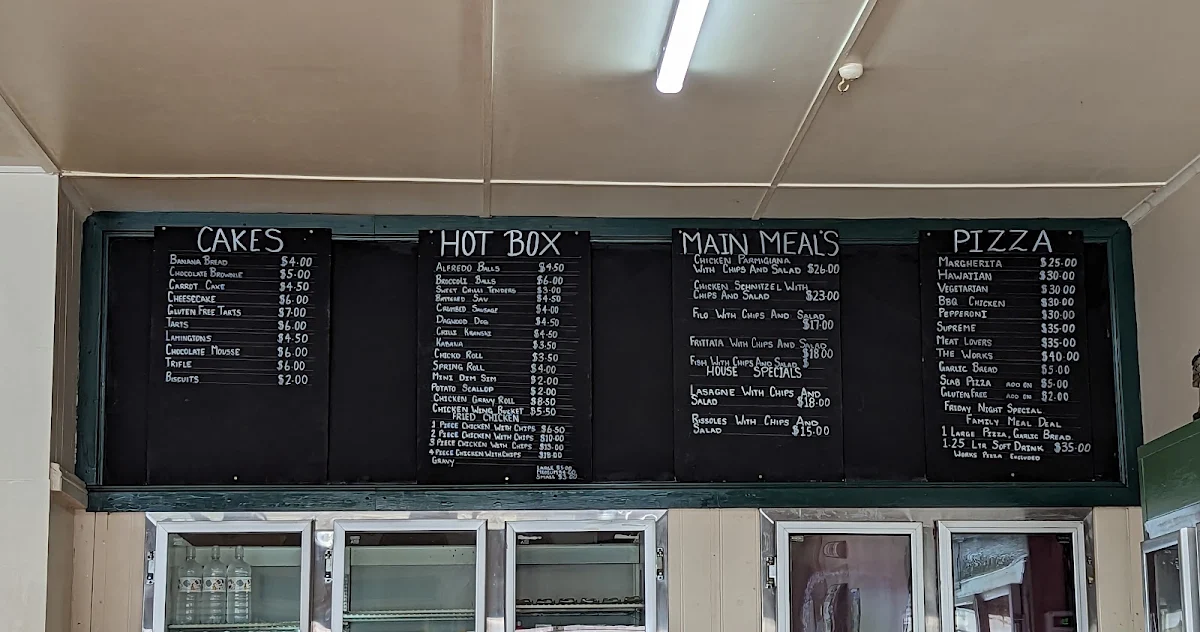 CAKES
BANANA BREAD $4.00
CHOCOLATE BROWNIE $5.00
CARROT CAKE $4.50
CHEESECAKE $6.00
GLUTEN FREE TARTS $7.00
TARTS $6.00
LAMINGTONS $4.50
CHOCOLATE MOUSSE $6.00
TRIFLE $6.00
BISCUITS $2.00
HOT BOX
ALFREDO BALLS $4.50
BROCCOLI BALLS $6.00
SWEET CHILLI TENDERS $3.00
BATTERED SAV $4.50
CRUMBED SAUSAGE $4.00
DAGWOOD DOG $4.50
CHILLI KRANSKI $4.50
KABANA $3.50
CHICKO ROLL $3.50
SPRING ROLL $4.00
MINI DIM SIM $2.00
POTATO SCALLOP $2.00
CHICKEN GRAVY ROLL $8.50
CHICKEN WING BUCKET $5.50
FRIED CHICKEN
1 PIECE CHICKEN WITH CHIPS $6.50
2 PIECE CHICKEN WITH CHIPS $10.00
3 PIECE CHICKEN WITH CHIPS $13.00
4 PIECE CHICKEN WITH CHIPS $18.00
GRAVY
LARGE $5.00
MEDIUM $4.00
SMALL $3.00
MAIN MEAL'S
CHICKEN PARMIGIANA
WITH CHIPS AND SALAD $26.00
CHICKEN SCHNITZEL WITH
CHIPS AND SALAD $23.00
FILO WITH CHIPS AND SALAD
$17.00
FRITTATA WITH CHIPS AND SALAD
$18.00
FISH WITH CHIPS AND SALAD
HOUSE SPECIALS
LASAGNE WITH CHIPS AND
SALAD $18.00
RISSOLES WITH CHIPS AND
SALAD $15.00
PIZZA
MARGHERITA $25.00
HAWAIIAN $30.00
VEGETARIAN $30.00
BBQ CHICKEN $30.00
PEPPERONI $30.00
SUPREME $35.00
MEAT LOVERS $35.00
THE WORKS $40.00
GARLIC BREAD $5.00
SLAB PIZZA ADD ON $5.00
GLUTEN FREE ADD ON $2.00
FRIDAY NIGHT SPECIAL
FAMILY MEAL DEAL
1 LARGE PIZZA, GARLIC BREAD
1.25 LTR SOFT DRINK $35.00
WORKS PIZZA EXCLUDED